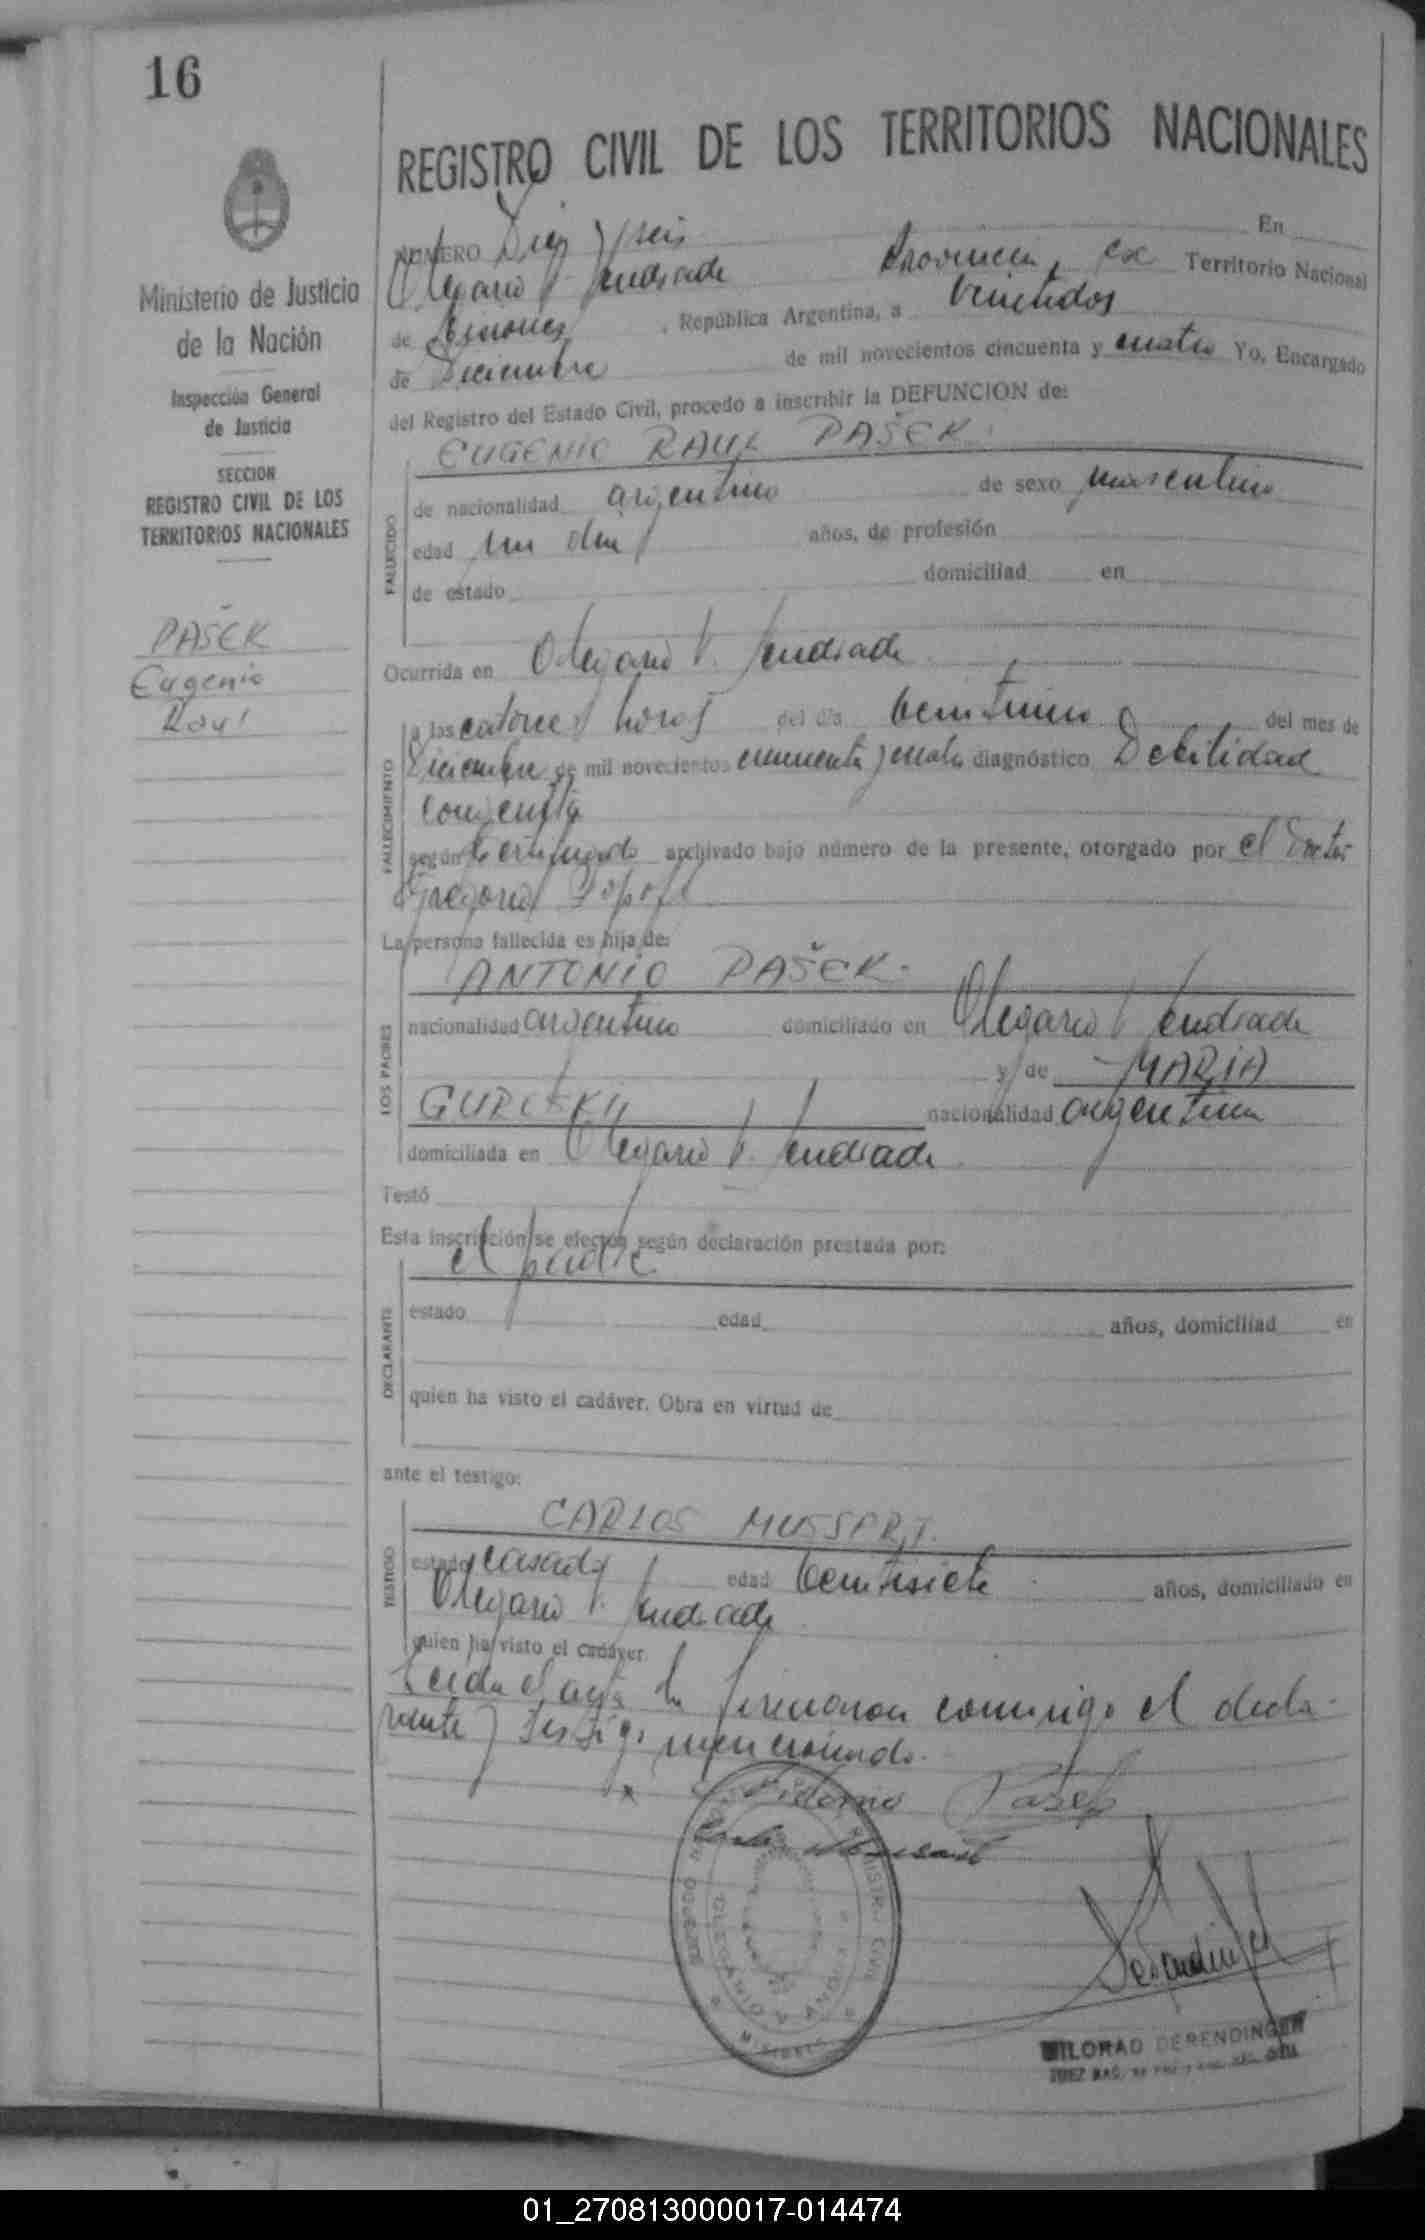 16
REGISTRO CIVIL DE LOS TERRITORIOS NACIONALES
Ministerio de Justicia
de la Nación
Inspección General
de Justicia
SECCION
REGISTRO CIVIL DE LOS
TERRITORIOS NACIONALES
PAŠEK
Eugenio
Raul
NUMERO Diez y seis En
Olegario V. Andrade Provincia, ex Territorio Nacional
de Misiones, República Argentina, a veintidos
de Diciembre de mil novecientos cincuenta y cuatro Yo, Encargado
del Registro del Estado Civil, procedo a inscribir la DEFUNCION de:
EUGENIO RAUL PAŠEK.
FALLECIDO
de nacionalidad argentino de sexo masculino
edad un dia años, de profesión
de estado domiciliad en
Ocurrida en Olegario V. Andrade
FALLECIMIENTO
a las catorce horas del día veintiuno del mes de
Diciembre de mil novecientos cincuenta y cuatro diagnóstico Debilidad
congenita
según certificado archivado bajo número de la presente, otorgado por el Doctor
Gregorio
La persona fallecida es hija de:
LOS PADRES
ANTONIO PAŠEK.
nacionalidad argentino domiciliado en Olegario V. Andrade
y de MARIA
nacionalidad argentina
domiciliada en Olegario V. Andrade
Testó
Esta inscripción se efectúa según declaración prestada por:
DECLARANTE
el padre
estado edad años, domiciliad en
quien ha visto el cadáver. Obra en virtud de
ante el testigo:
TESTIGO
CARLOS
estado casado edad veintisiete años, domiciliado en
Olegario V. Andrade
quien ha visto el cadáver
Leida el acta la firmaron conmigo el decla-
rante y testigo mencionado.
Antonio Pasek
MILORAD DERENDINGER
JUEZ
01_270813000017-014474